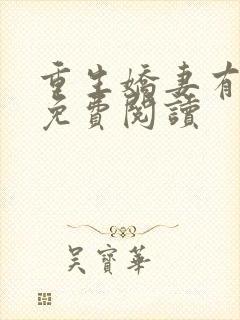 重生嬌妻有
免費閱讀
吳寶華